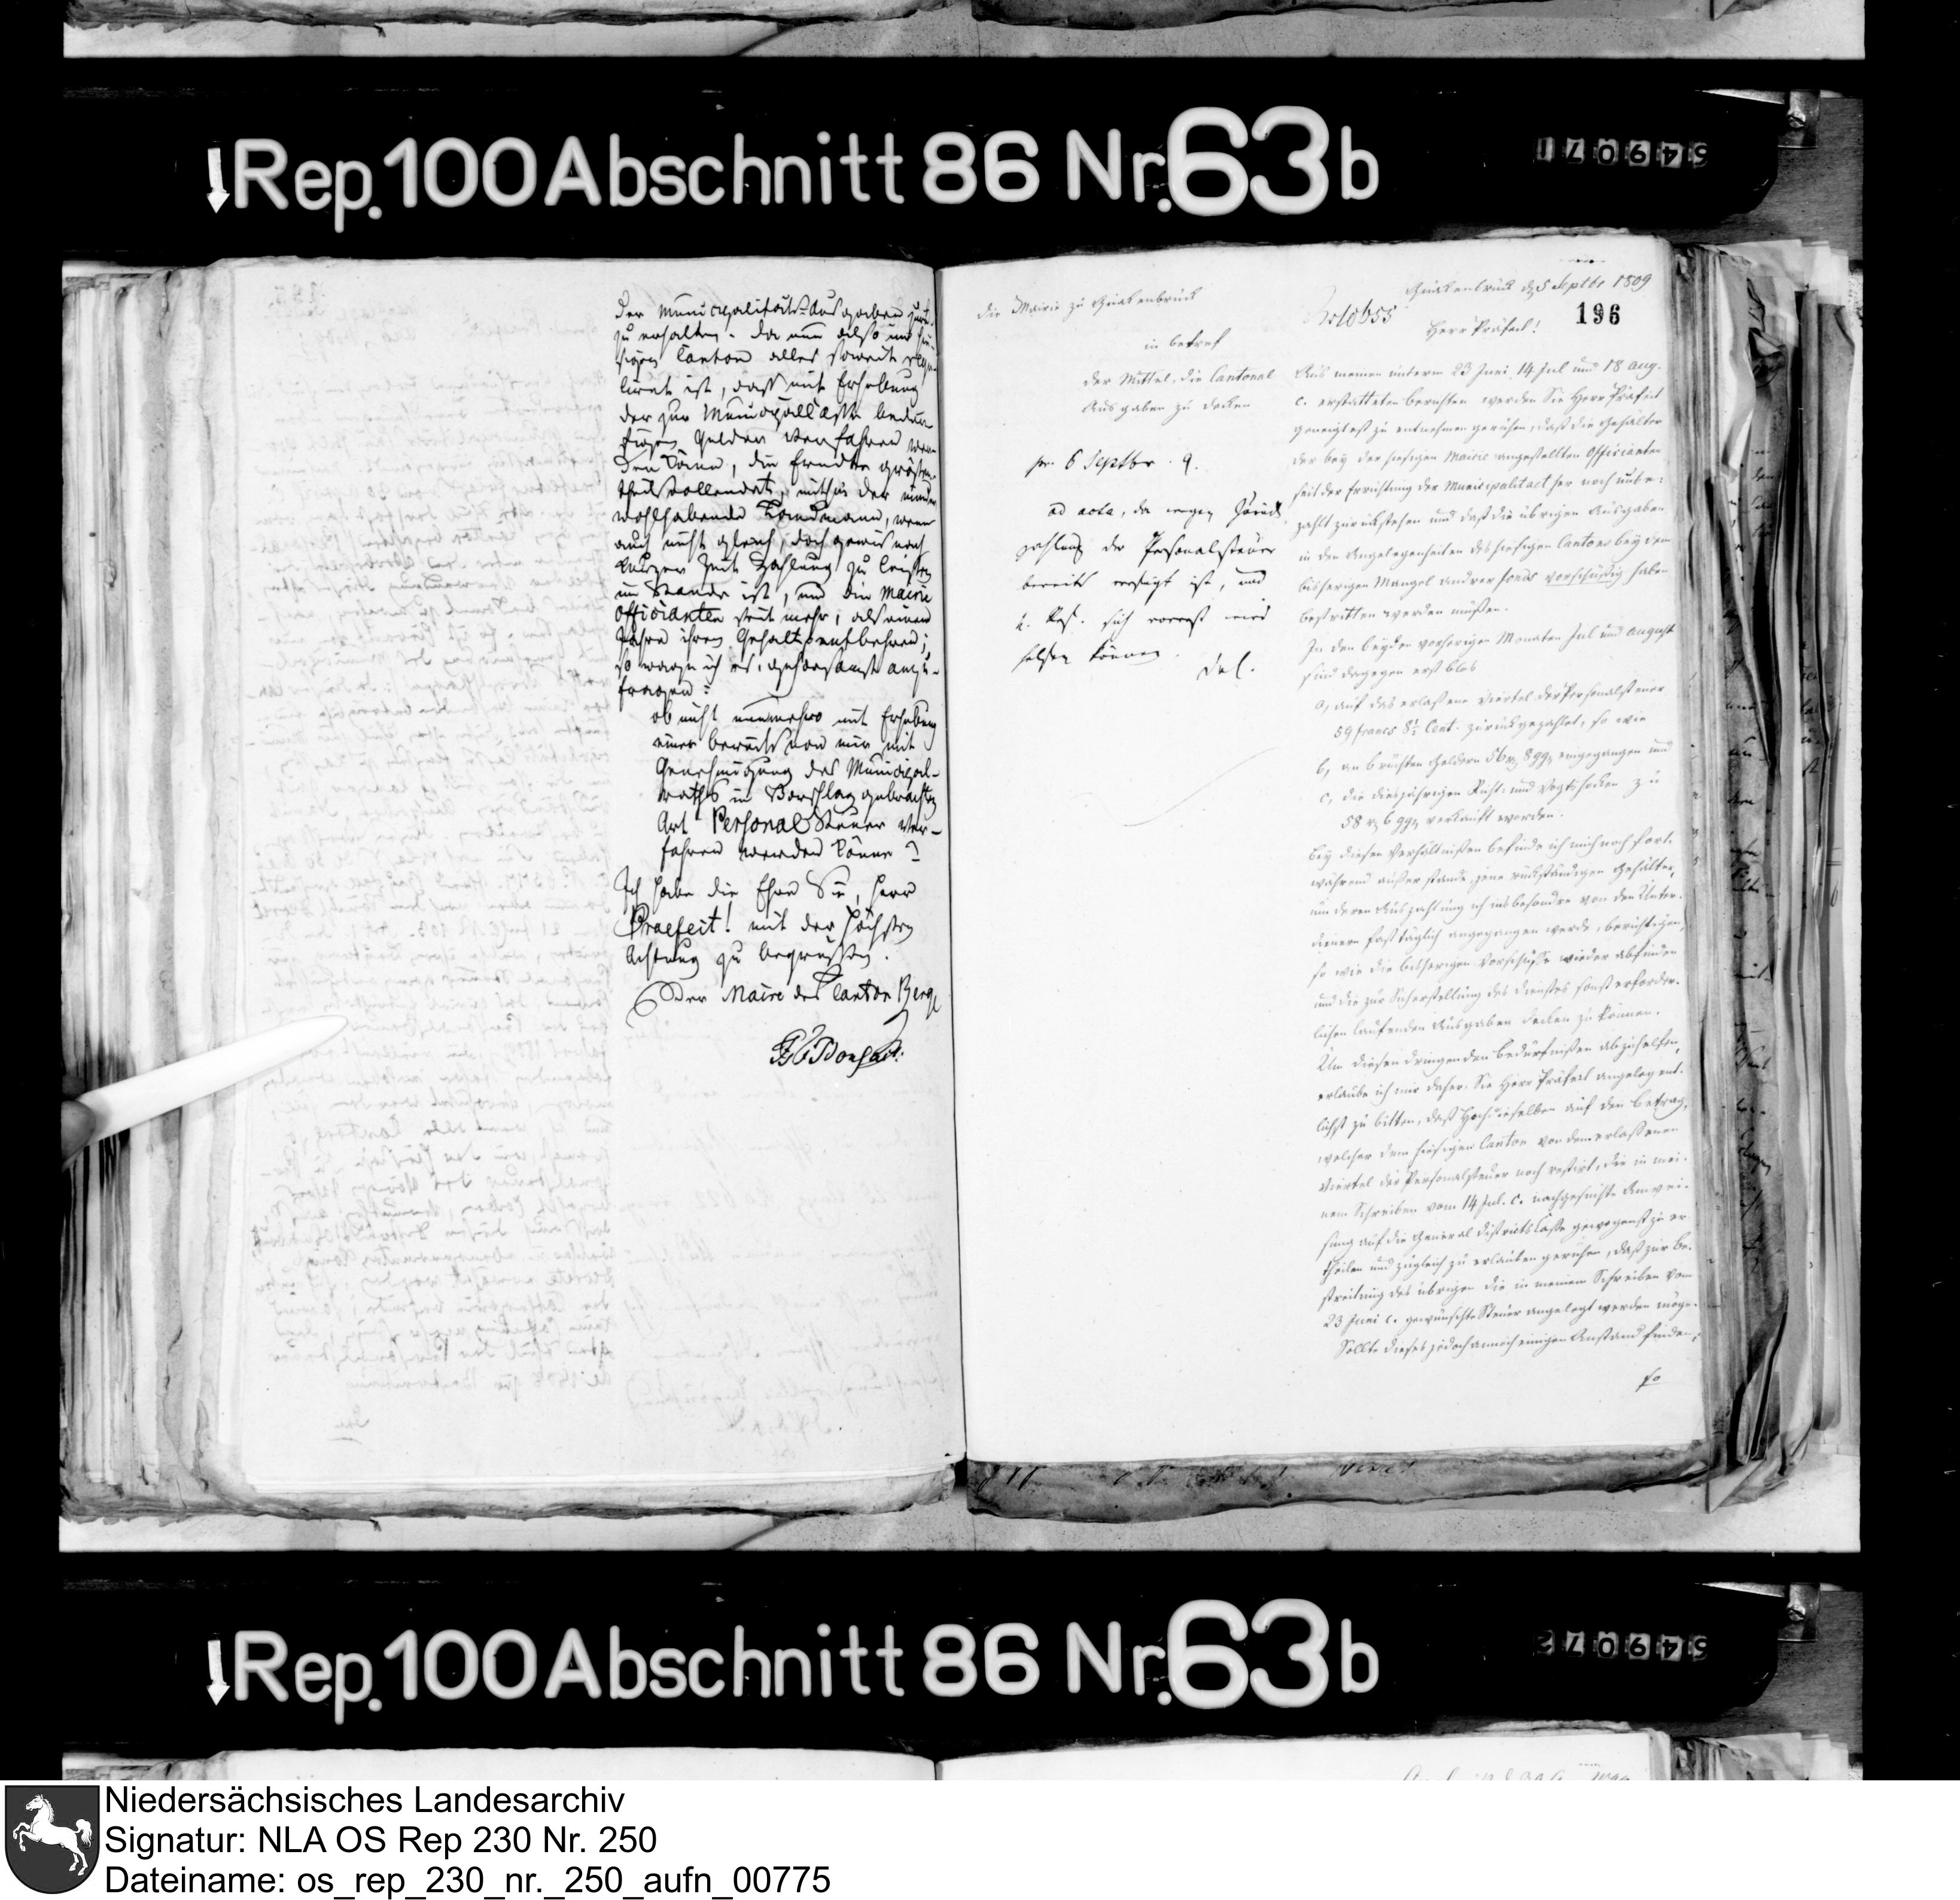 Rep. 100 Abschnitt 86 Nr. 63b
549071
der Municipalitäts-Ausgaben zurük
zu erhalten. Da nun also im hie-
sigen Canton alles soweit regu-
lirt ist, daß mit Erhebung
der zur Municipal Casse bedürf-
tigen Gelder verfahren wer-
den könne, die Erndte größten-
theils vollendet, mithin der minder
wohlhabende Landmann, wenn
auch nicht gleich, doch gewis nach
kurzer Zeit Zahlung zu leisten
im Stande ist, und die Mairie
Officianten seit mehr, als einem
Jahre ihren Gehalt entbehren;
so wage ich es, gehorsamst anzu-
fragen:
ob nicht nunmehro mit Erhebung
einer bereits von mir mit
Genehmigung des Municipal-
raths in Vorschlag gebrachten
Art Personal Steuer ver-
fahren werden könne?
Ich habe die Ehre Sie, Herr
Praefect! mit der höchsten
Achtung zu begrüssen.
Der Maire des Canton Berge
Die Mairie zu Quakenbrück
in betref
der Mittel, die Cantonal
Ausgaben zu decken
pr. 6 Septbr. 9.
ad acta, da wegen Zurück
zahlung der Personalsteuer
bereits verfügt ist, und
sich vorerst wird
helfen können.
Quakenbrück d 5 Septbr 1809
196
Herr Präfect!
Aus meinen unterm 23 Juni, 14 Jul und 18 Aug.
c. erstatteten Berichten werden Sie Herr Präfect
geneigtest zu entnehmen geruhen, daß die Gehälter
der bey der hiesigen Mairie angestellten Officianten
seit der Errichtung der Municipalitaet her noch unbe-
zahlt zurückstehen und daß die übrigen Ausgaben
in den Angelegenheiten des hiesigen Cantons bey dem
bisherigen Mangel andrer Fonds vorschüßig haben
bestritten werden müßen.
In den beyden vorherigen Monaten Jul und August
sind dagegen erst blos
a, auf das erlaßene Viertel der Personalsteuer
59 francs 8½ Cent. zurückgezahlt, so wie
b, an Brüchten Geldern 56 rt 8 ggr eingegangen und
c, die diesjährigen und zu
58 rt 6 ggr verkauft worden.
Bey diesen Verhältnißen befinde ich mich noch fort-
während außer stande, jene rückständigen Gehälter,
um deren Auszahlung ich insbesondre von den Unter-
dienern fast täglich angegangen werde, berichtigen,
so wie die bisherigen Vorschüße wieder abfinden
und die zur Sicherstellung des Dienstes sonst erforder-
lichen laufenden Ausgaben decken zu können.
Um diesen dringenden Bedürfnißen abzuhelfen,
erlaube ich mir daher, Sie Herr Präfect angelegent-
lichst zu bitten, daß Hochdieselben auf den Betrag,
welcher dem hiesigen Canton von dem erlaßenen
Viertel der Personalsteuer noch restirt, die in mei-
nem Schreiben vom 14 Jul. c. nachgesuchte Anwei-
sung auf die General Districts Caße gewogenst zu er-
theilen und zugleich zu erlauben geruhen, daß zur Be-
streitung des übrigen die in meinem Schreiben vom
23 Juni c. gewünschte Steuer angelegt werden möge.
Sollte dieses jedoch annoch einigen Anstand finden,
so
Rep. 100 Abschnitt 86 Nr. 63b
549072
Niedersächsisches Landesarchiv
Signatur: NLA OS Rep 230 Nr. 250
Dateiname: os_rep_230_nr._250_aufn_00775